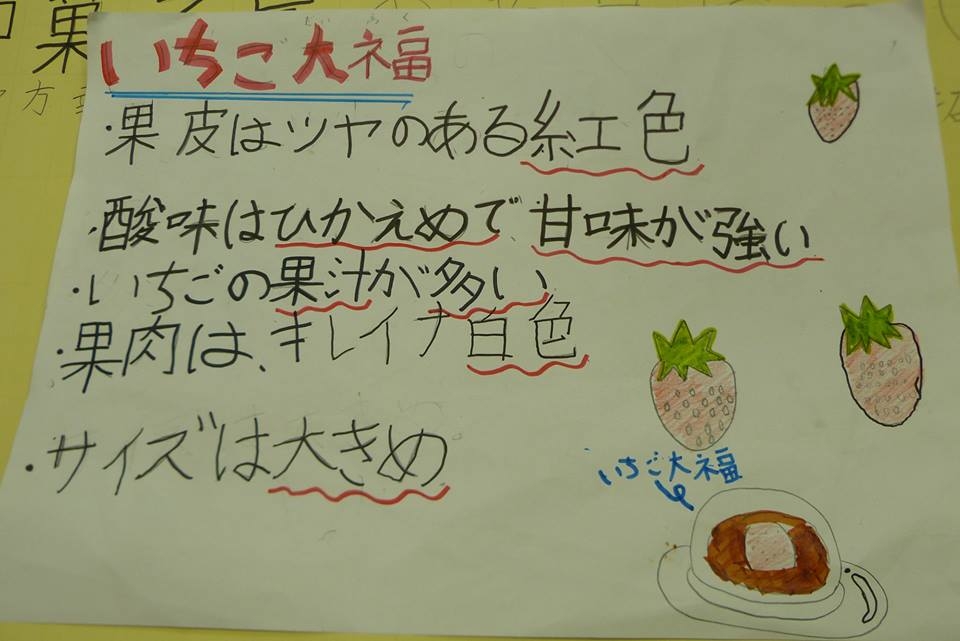 いちご大福
・果皮はツヤのある紅色
・酸味はひかえめで、甘味が強い
・いちごの果汁が多い
・果肉は、キレイナ白色
・サイズは大きめ
いちご大福